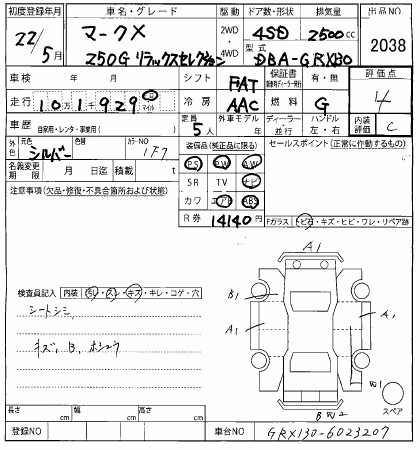 初度登録年月 車名・グレード 駆動 ドア数・形状 排気量 出品NO
22年 5月 マークX 2WD 4SD 2500cc 2038
250G リラックスセレクション 4WD 型式 DBA-GRX130
車検 年 月 シフト FAT 保証書 有・無 評価点
走行 10万1千929 km マイル 冷房 AAC 燃料 G 4
車歴 自家用・レンタ・事業用( ) 定員 5人 外車モデル 年 ディーラー・並行 ハンドル 左・右 内装評価 C
外色 元色 シルバー 色替 カラーNO 1F7 装備品(純正品に限る) セールスポイント(正常に作動するもの)
名義変更期限 月 日迄 積載 t PS PW AW
注意事項(欠品・修復・不具合箇所および状態) SR TV ナビ
カワ エアB ABS
R券 14140円 Fガラス トビ石・キズ・ヒビ・ワレ・リペア跡
A1
検査員記入 内装 ヨゴレ・スレ・キズ・キレ・コゲ・穴 B1
シートシミ A1 A1
キズ、B、ホシュウ
W1
B W2 スペア
長さ cm 幅 cm 高さ cm
登録NO 車台NO GRX130-6023207